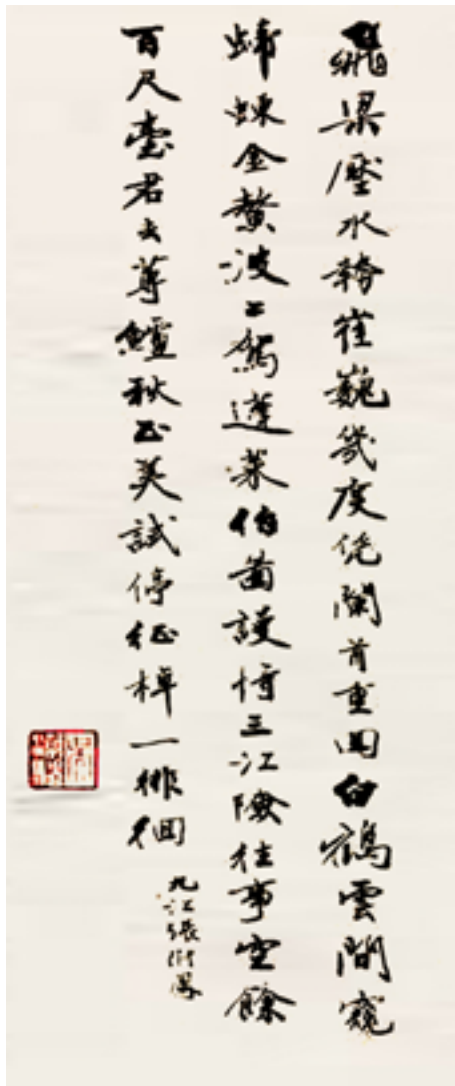 飛梁壓水勢崔巍幾度凭闌首重回白鶴雲間窺
螮蝀金鰲波上駕蓬萊伯啚謾恃三江險往事空餘
百尺臺君去蓴鱸秋正美試停征棹一徘徊
九江張衍